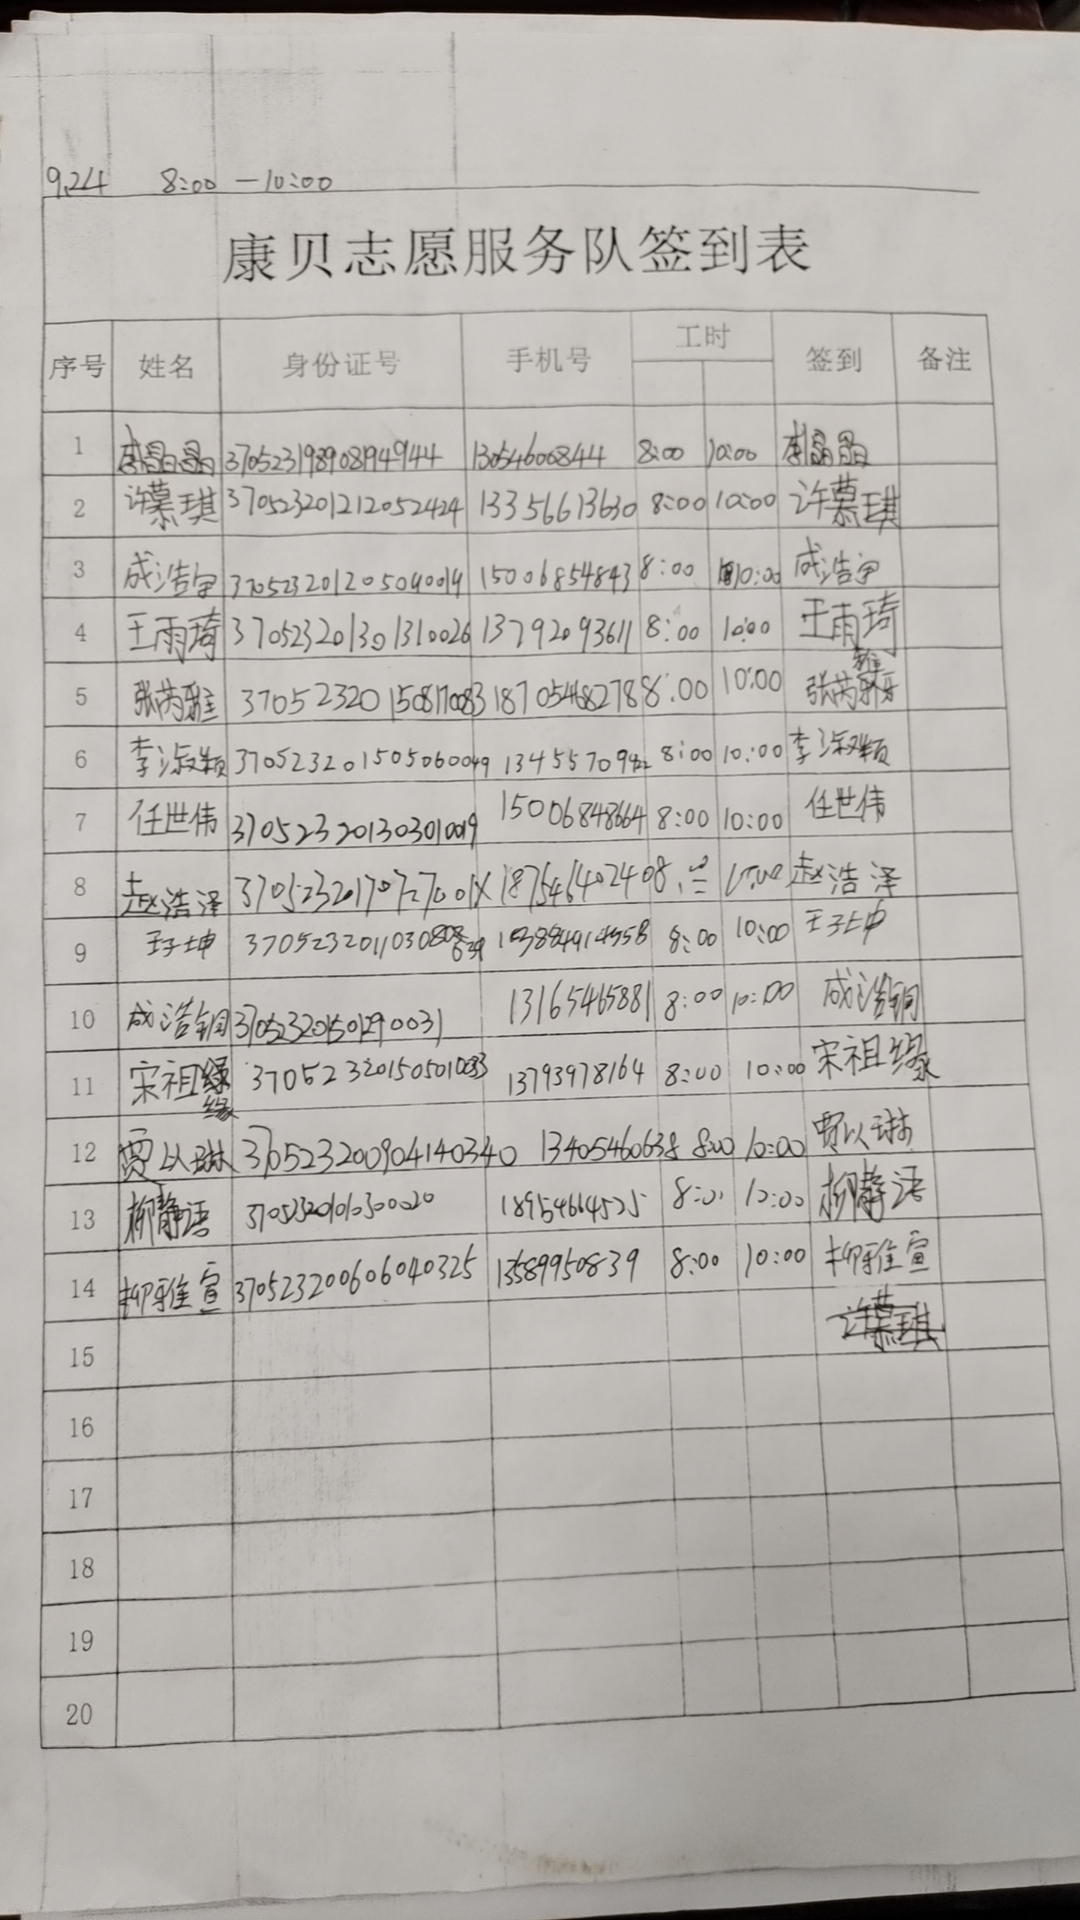 9.24 8:00 — 10:00
康贝志愿服务队签到表
序号 姓名 身份证号 手机号 工时 签到 备注
1 李晶晶 370523198908194944 13054600844 8:00 10:00 李晶晶
2 许慕琪 370523201212052424 13356613630 8:00 10:00 许慕琪
3 成浩宇 370523201205040014 15006854843 8:00 10:00 成浩宇
4 王雨琦 370523201301310026 13792093611 8:00 10:00 王雨琦
5 张芮雅 370523201508170083 18705468278 8:00 10:00 张芮雅
6 李淑颖 370523201505060049 8:00 10:00 李淑颖
7 任世伟 370523201303010019 15006848664 8:00 10:00 任世伟
8 赵浩泽 18754640240 赵浩泽
9 王子坤 8:00 10:00 王子坤
10 成浩铜 370523201501290031 13165465881 8:00 10:00 成浩铜
11 宋祖缘 370523201505010033 13793978164 8:00 10:00 宋祖缘
12 贾以琳 370523200904140340 13405460638 8:00 10:00 贾以琳
13 柳静语 18954664525 8:00 10:00 柳静语
14 柳雅宣 370523200606040325 13589950839 8:00 10:00 柳雅宣
15 许慕琪
16
17
18
19
20